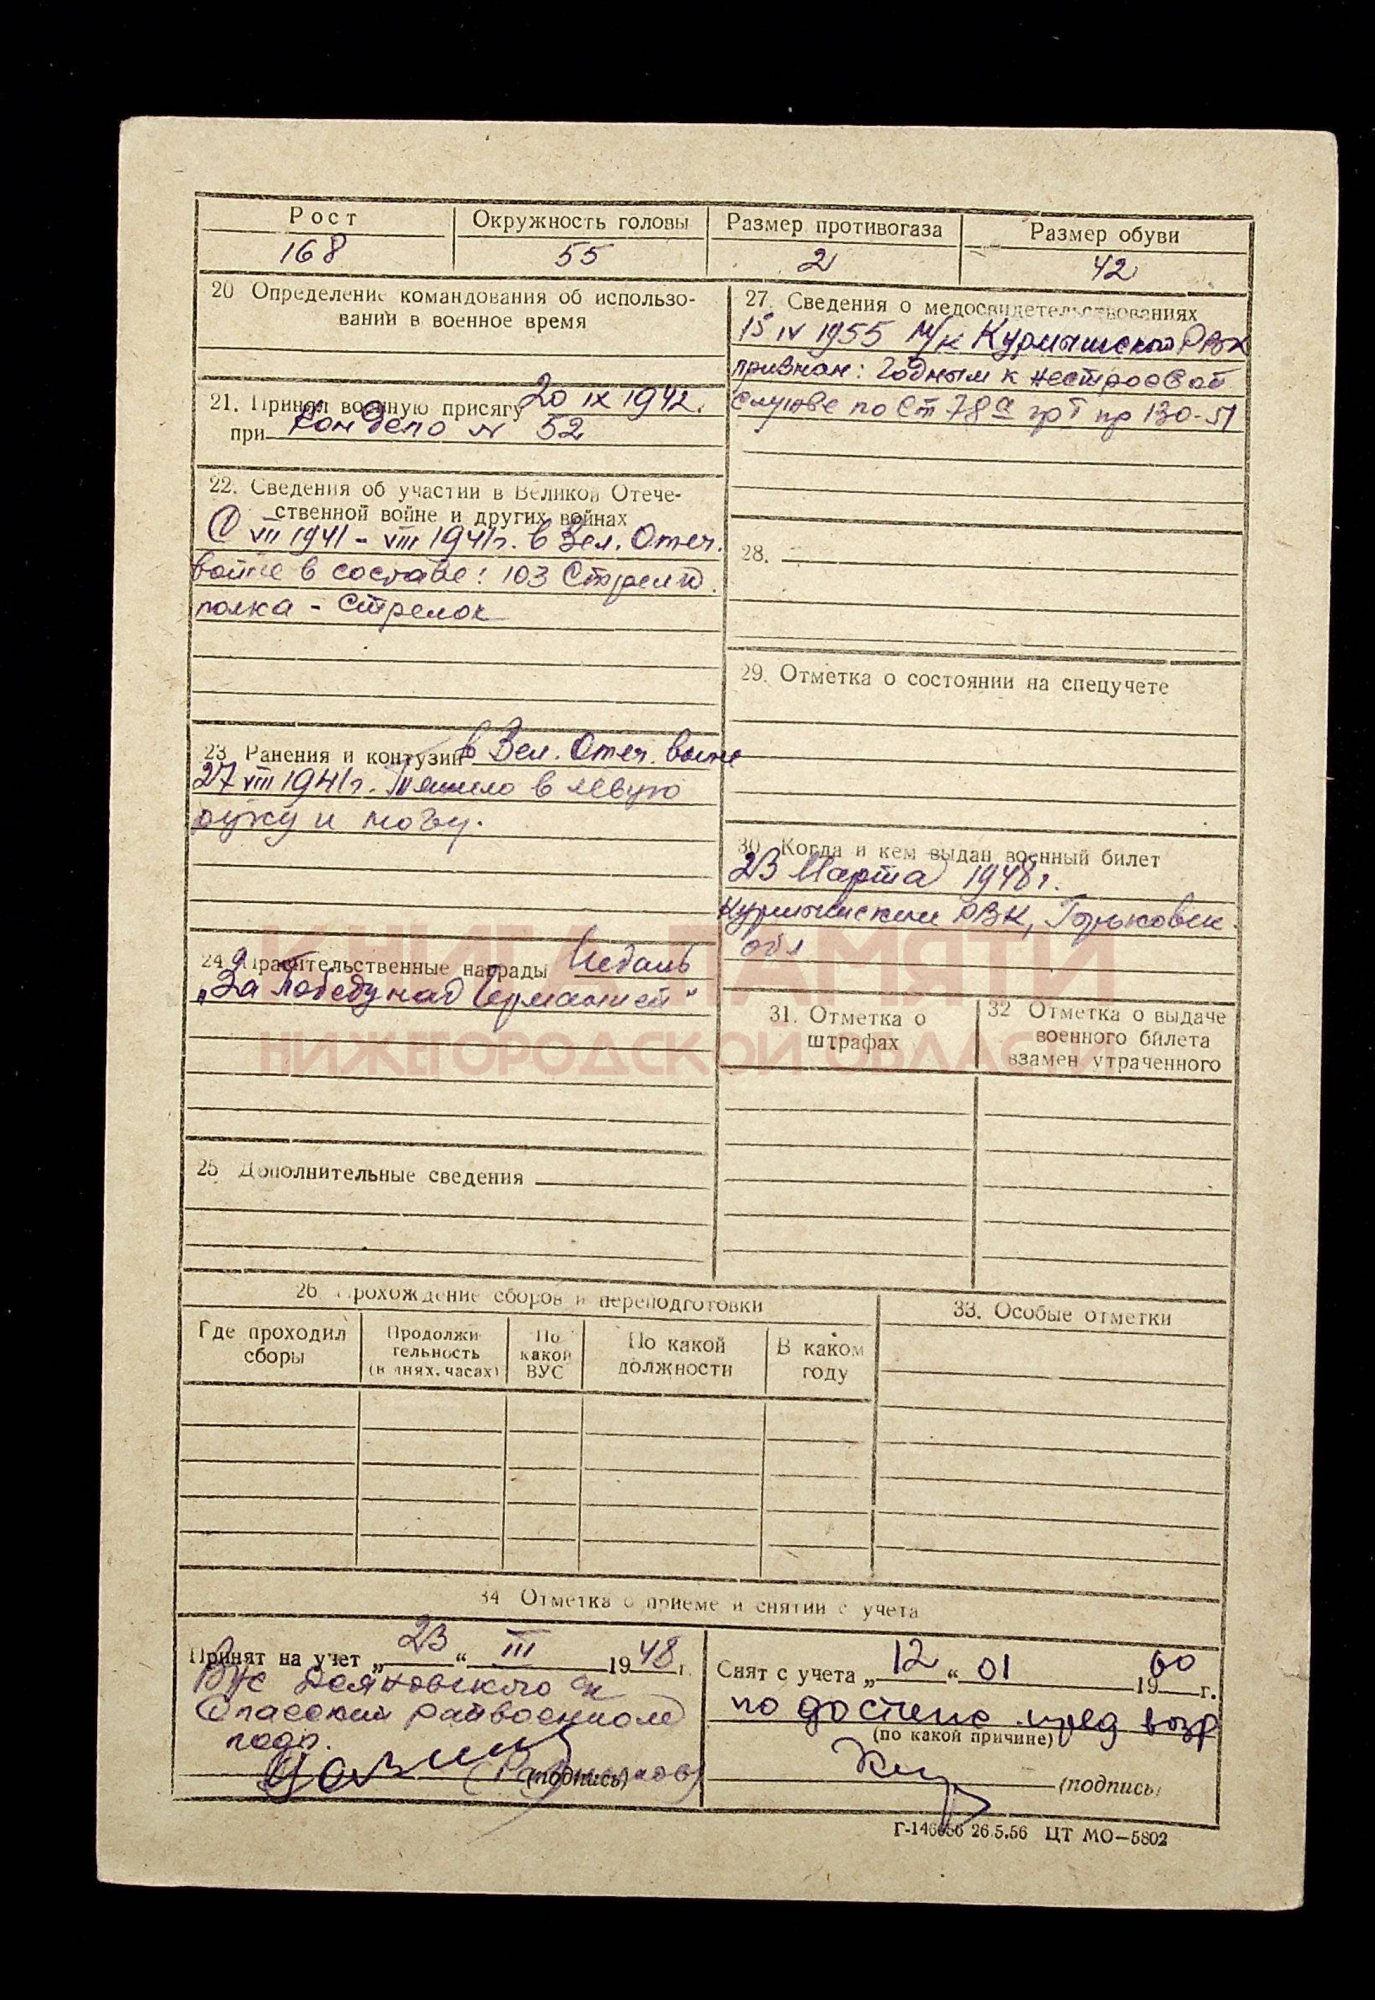 Рост
Окружность головы
Размер противогаза
Размер обуви
168
55
2
42
20 Определение командования об использо-
вании в военное время
21. Принял военную присягу 20 IX 1942.
при Кон Депо № 52
22. Сведения об участии в Великой Отече-
ственной войне и других войнах
С VII 1941 - VIII 1941г. в Вел. Отеч.
войне в составе: 103 Стрелк.
полка - Стрелок
23 Ранения и контузии в Вел. Отеч. войне
27 VIII 1941г. Тяжело в левую
руку и ногу.
24. Правительственные награды Медаль
„За Победу над Германией"
25 Дополнительные сведения
27. Сведения о медосвидетельствованиях
15 IV 1955 М/к Курмышской РВК
признан: Годным к нестроевой
службе по Ст 78а гр I пр 130-51
28.
29. Отметка о состоянии на спецучете
30 Когда и кем выдан военный билет
23 Марта 1948г.
Курмышским РВК, Горьковск.
обл
31. Отметка о
штрафах
32 Отметка о выдаче
военного билета
взамен утраченного
КНИГА ПАМЯТИ
НИЖЕГОРОДСКОЙ ОБЛАСТИ
26 Прохождение сборов и переподготовки
Где проходил
сборы
Продолжи-
тельность
(в днях, часах)
По
какой
ВУС
По какой
должности
В каком
году
33. Особые отметки
34 Отметка о приеме и снятии с учета
Принят на учет „23" III 1948 г.
ВУС Деяновского
Спасским райвоенкомом
Снят с учета „12" 01 1960 г.
по достиже пред возр
(по какой причине)
(подпись)
(подпись)
Г-146656 26.5.56 ЦТ МО—5802